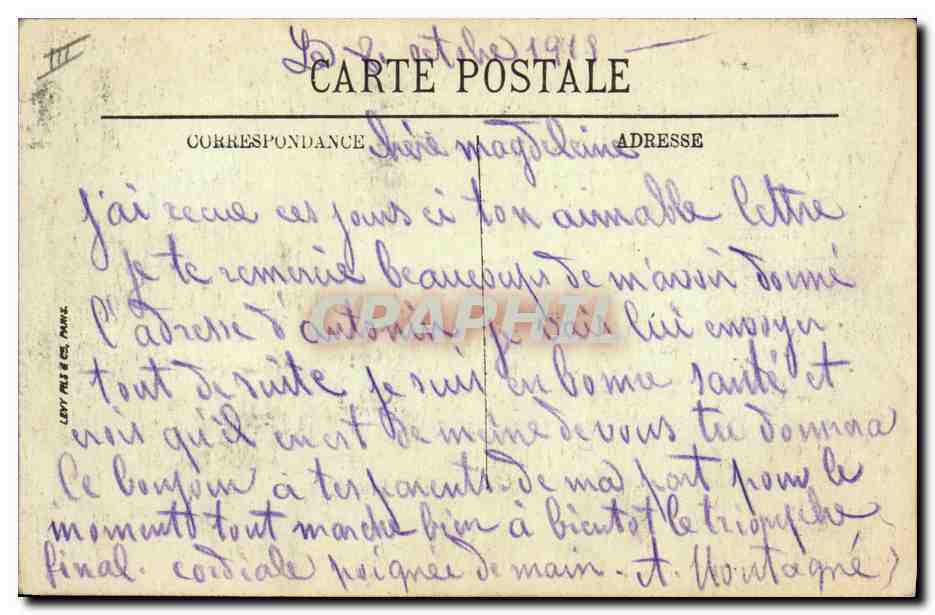 Le 8 octobre 1918
CARTE POSTALE
CORRESPONDANCE
ADRESSE
chère magdeleine
j'ai recue ces jours ci ton aimable lettre
je te remercie beaucoup de m'avoir donné
l'adresse d'antonin, je vais lui envoyer
tout de suite je suis en bonne santé et
crois qu'il en est de même de vous tu donnera
le bonjour à tes parents de ma part pour le
moment tout marche bien à bientot le triomphe
final. cordiale poignée de main. A. Montagné
LEVY FILS & CIE, PARIS.
III
CPAPHIL